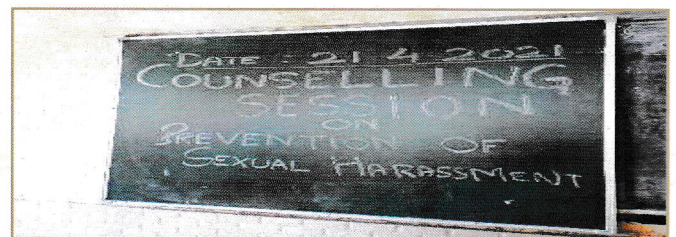 DATE : 21 4 2021
COUNSELLING
SESSION
ON
PREVENTION OF
SEXUAL HARASSMENT